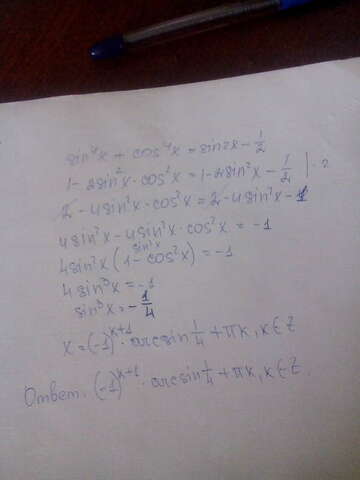 sin⁴x + cos⁴x = sin2x - 1/2
1 - 2sin²x · cos²x = 1 - 2sin²x - 1/2 | · 2
2 - 4sin²x · cos²x = 2 - 4sin²x - 1
4sin²x - 4sin²x · cos²x = -1
sin²x
4sin²x (1 - cos²x) = -1
4 sin⁰x = -1
sin⁰x = - 1/4
x = (-1)ᵏ⁺¹ · arcsin 1/4 + πk, k ∈ Z
Ответ: (-1)ᵏ⁺¹ · arcsin 1/4 + πk, k ∈ Z.